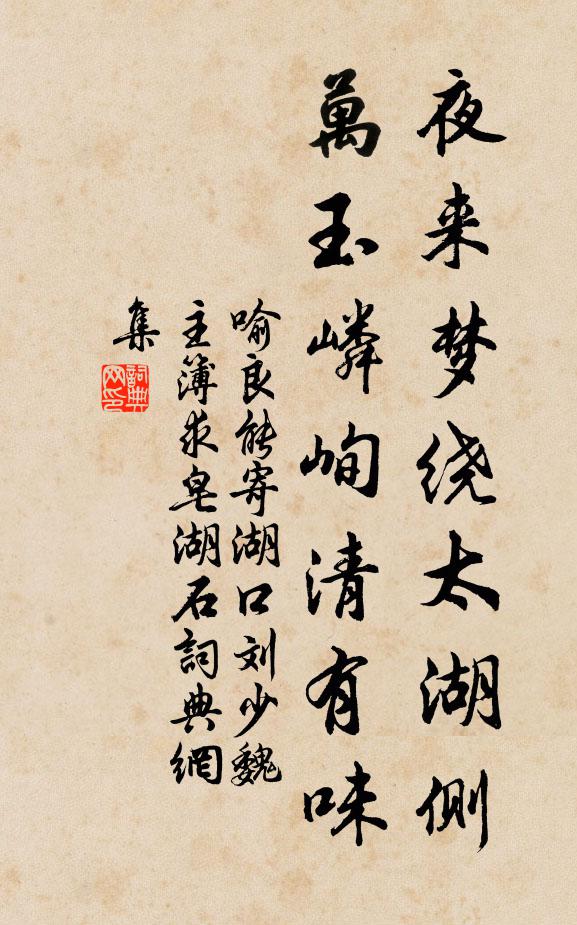 夜来梦绕太湖侧
萬玉嶙峋清有味
喻良能寄湖口刘少魏
主簿求皂湖石詞典網
集
詞典
网印